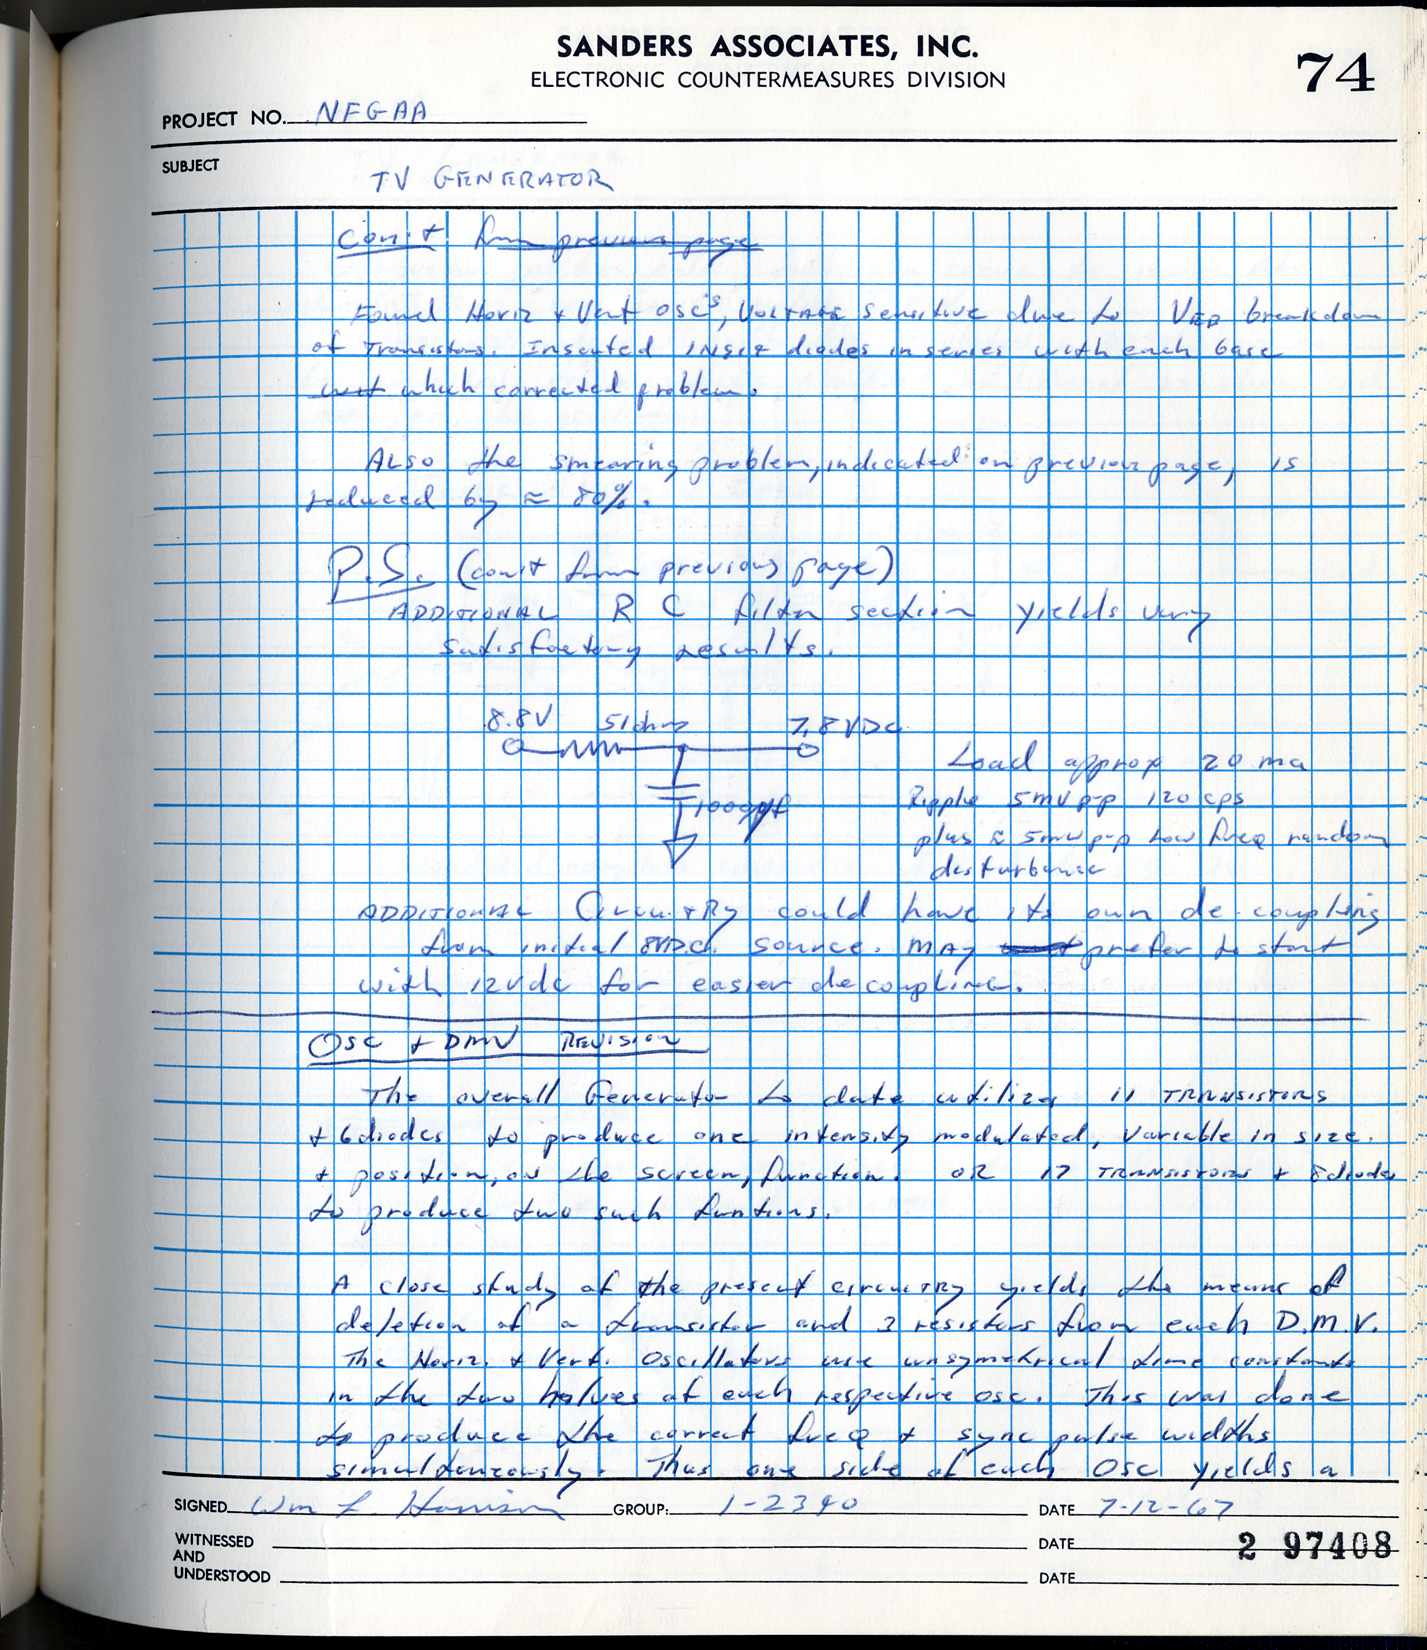 SANDERS ASSOCIATES, INC.
ELECTRONIC COUNTERMEASURES DIVISION
74
PROJECT NO. NFGAA
SUBJECT
TV GENERATOR
Con't from previous page
Found Horiz + Vert osc's, VOLTAGE sensitive due to VEB breakdown
of Transistors. Inserted 1N914 diodes in series with each base
which corrected problem.
ALSO the smearing problem, indicated on previous page, is
reduced by ≈ 80%.
P.S. (con't from previous page)
ADDITIONAL R C filter section yields very
satisfactory results.
8.8V 51ohms 7.8VDC
Load approx 20 ma
1000μf Ripple 5mv p-p 120 cps
plus ≈ 5mv p-p Low freq random
disturbance
ADDITIONAL Circuitry could have its own de-coupling
from initial 8VDC source. MAY prefer to start
with 12vdc for easier decoupling.
Osc + DMV REVISION
The overall Generator to date utilizes 11 TRANSISTORS
+ 6 diodes to produce one intensity modulated, variable in size
+ position, on the screen, function. OR 17 TRANSISTORS + 8 diodes
to produce two such funtions.
A close study of the present circuitry yields the means of
deletion of a transistor and 3 resistors from each D.M.V.
The Horiz. + Vert. Oscillators use unsymetrical time constants
in the two halves of each respective osc. This was done
to produce the correct freq + sync pulse widths
simultaneously. Thus one side of each Osc yields a
SIGNED Wm L. Harrison GROUP: 1-2390 DATE 7-12-67
WITNESSED
AND
UNDERSTOOD
DATE
2 97408
DATE